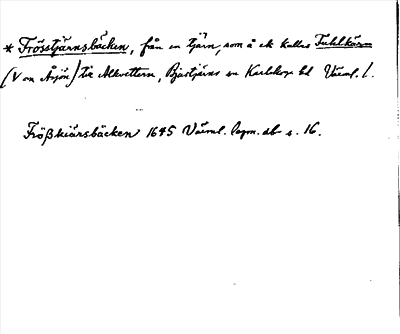 * Frösstjärnsbäcken, från en tjärn, som å ek kallas Fuhlkär=
(V om Åsjön) till Alkvettern, Bjurtjärns sn Karlskoga bd Värml. l.
Fröẞkiärsbäcken 1645 Värml. lagm. db s. 16.